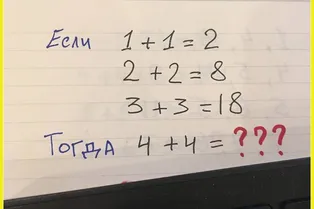 Если 1+1=2
2+2=8
3+3=18
Тогда 4+4=???